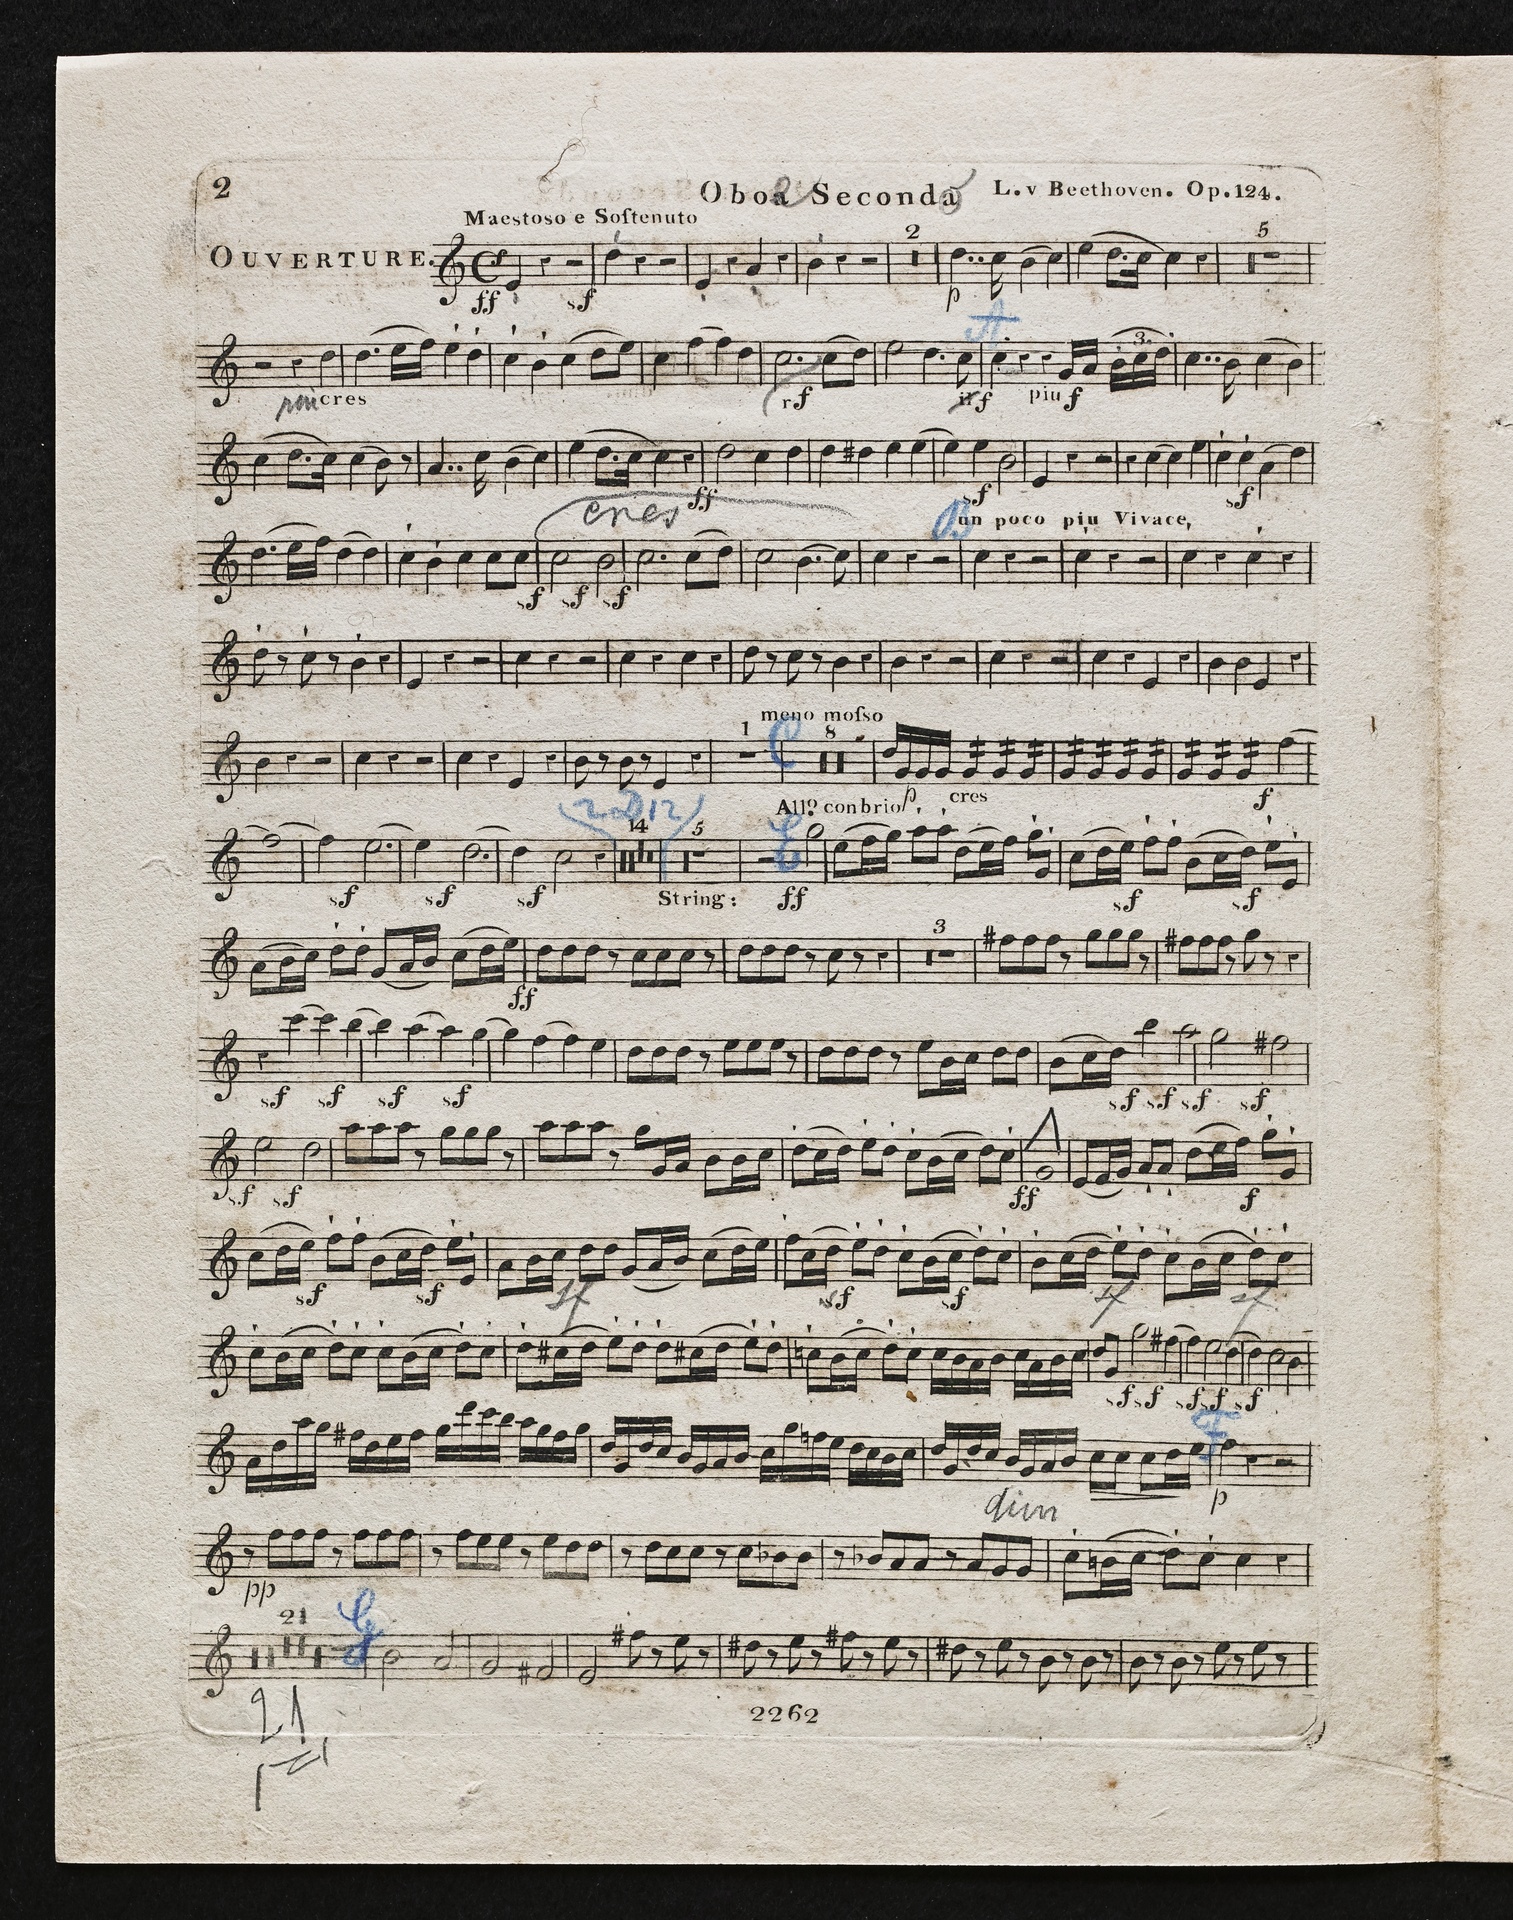 2 Oboa Seconda L. v Beethoven. Op. 124.
Maestoso e Soſtenuto
OUVERTURE.
2 5
ff sf p
A
3.
cres rf f piu f
ff sf sf
cres
B un poco piu Vivace,
sf sf sf
meno moſso
1 C 8
p, cres f
All.º con brio
2 D 12
14 5 E
sf sf sf String: ff sf sf
3
ff
sf sf sf sf sf sf sf sf
sf sf ff f
sf sf sf sf
sf sf sf sf sf
F
p
dim
pp
21 G
2262
21